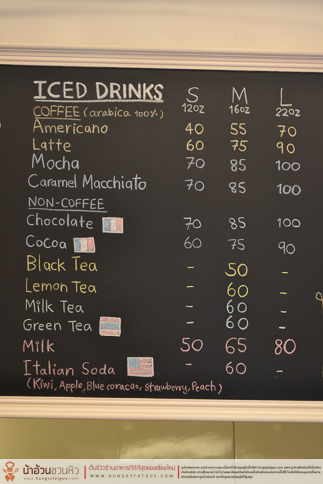 ICED DRINKS S M L
COFFEE (arabica 100%) 12oz 16oz 22oz
Americano 40 55 70
Latte 60 75 90
Mocha 70 85 100
Caramel Macchiato 70 85 100
NON-COFFEE
Chocolate 70 85 100
Cocoa 60 75 90
Black Tea - 50 -
Lemon Tea - 60 -
Milk Tea - 60 -
Green Tea - 60 -
Milk 50 65 80
Italian Soda - 60 -
(Kiwi, Apple, Blue coracao, Strawberry, Peach)
น้าอ้วนชวนหิว
www.hungryfatguy.com
เว็บรีวิวร้านอาหารที่ดีที่สุดของเชียงใหม่
WWW.HUNGRYFATGUY.COM